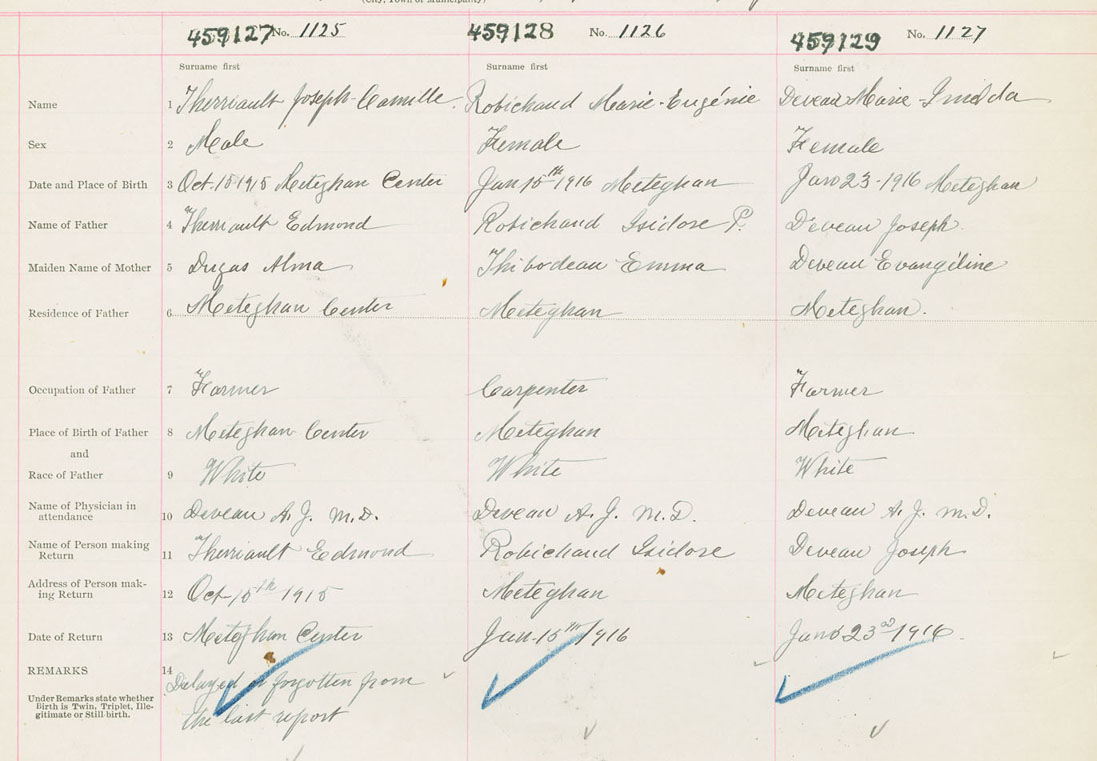 (City, Town or Municipality)
459127 No. 1125 459128 No. 1126 459129 No. 1127
Surname first Surname first Surname first
Name 1 Therriault Joseph-Camille. Robichaud Marie-Eugénie Deveau Marie-Imelda
Sex 2 Male Female Female
Date and Place of Birth 3 Oct. 15 1915 Meteghan Center Jan 15th 1916 Meteghan Jan 23-1916 Meteghan
Name of Father 4 Therriault Edmond Robichaud Isidore P. Deveau Joseph.
Maiden Name of Mother 5 Dugas Alma Thibodeau Emma Deveau Evangiline
Residence of Father 6 Meteghan Center Meteghan Meteghan.
Occupation of Father 7 Farmer Carpenter Farmer
Place of Birth of Father 8 Meteghan Center Meteghan Meteghan
and
Race of Father 9 White White White
Name of Physician in attendance 10 Deveau A. J. M.D. Deveau A. J. M.D. Deveau A. J. M.D.
Name of Person making Return 11 Therriault Edmond Robichaud Isidore Deveau Joseph
Address of Person making Return 12 Oct 15th 1915 Meteghan Meteghan
Date of Return 13 Meteghan Center Jan. 15th/1916 23rd 1916.
REMARKS 14 Delayed or forgotten from
Under Remarks state whether Birth is Twin, Triplet, Illegitimate or Still-birth. the last report